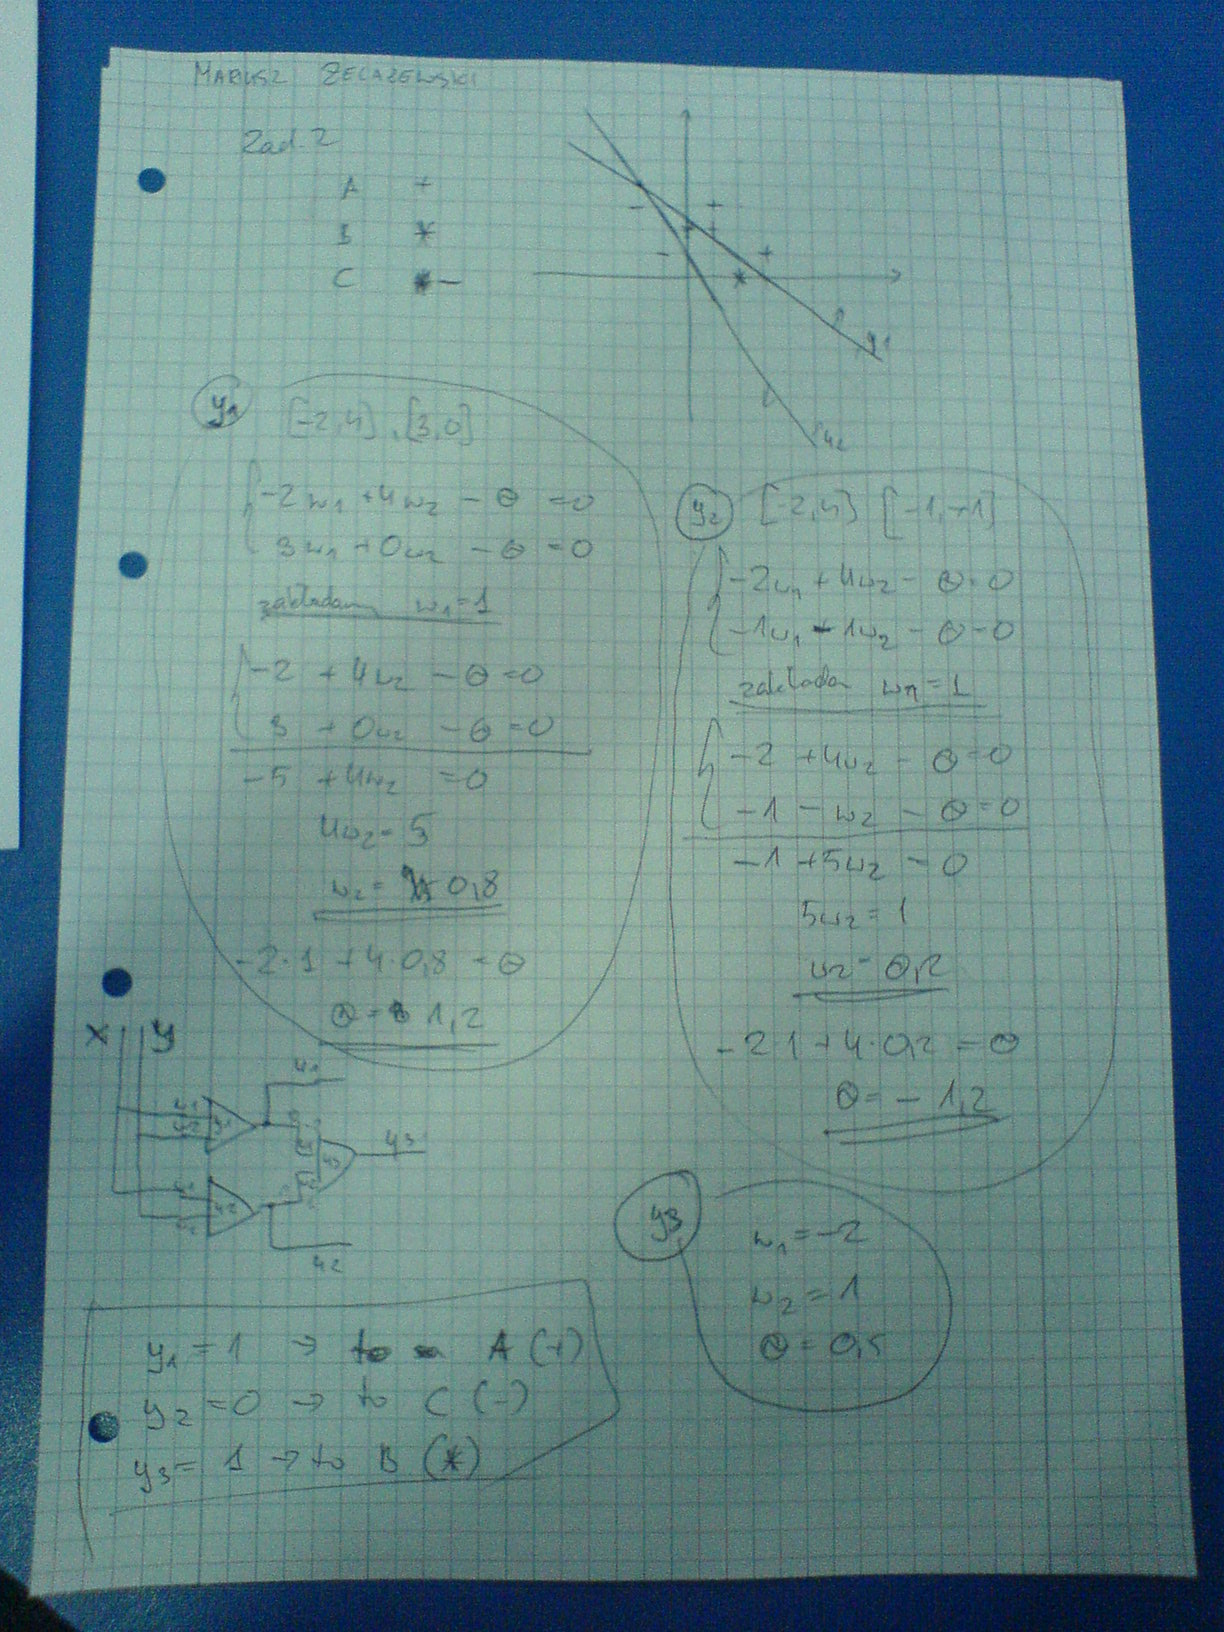 MARIUSZ ŻELAZEWSKI
Zad. 2
A +
B *
C -
y1
y2
y1 [-2,4], [3,0]
-2w1 + 4w2 - Θ = 0
3w1 + 0w2 - Θ = 0
zakładam w1 = 1
-2 + 4w2 - Θ = 0
3 + 0w2 - Θ = 0
-5 + 4w2 = 0
4w2 = 5
w2 = 0,8
-2·1 + 4·0,8 = Θ
Θ = 1,2
y2 [-2,4] [-1,-1]
-2w1 + 4w2 - Θ = 0
-1w1 - 1w2 - Θ = 0
zakładam w1 = 1
-2 + 4w2 - Θ = 0
-1 - w2 - Θ = 0
-1 + 5w2 = 0
5w2 = 1
w2 = 0,2
-2·1 + 4·0,2 = Θ
Θ = -1,2
x y
y1
y3
y2
y3
w1 = -2
w2 = 1
Θ = 0,5
y1 = 1 → to A (+)
y2 = 0 → to C (-)
y3 = 1 → to B (*)